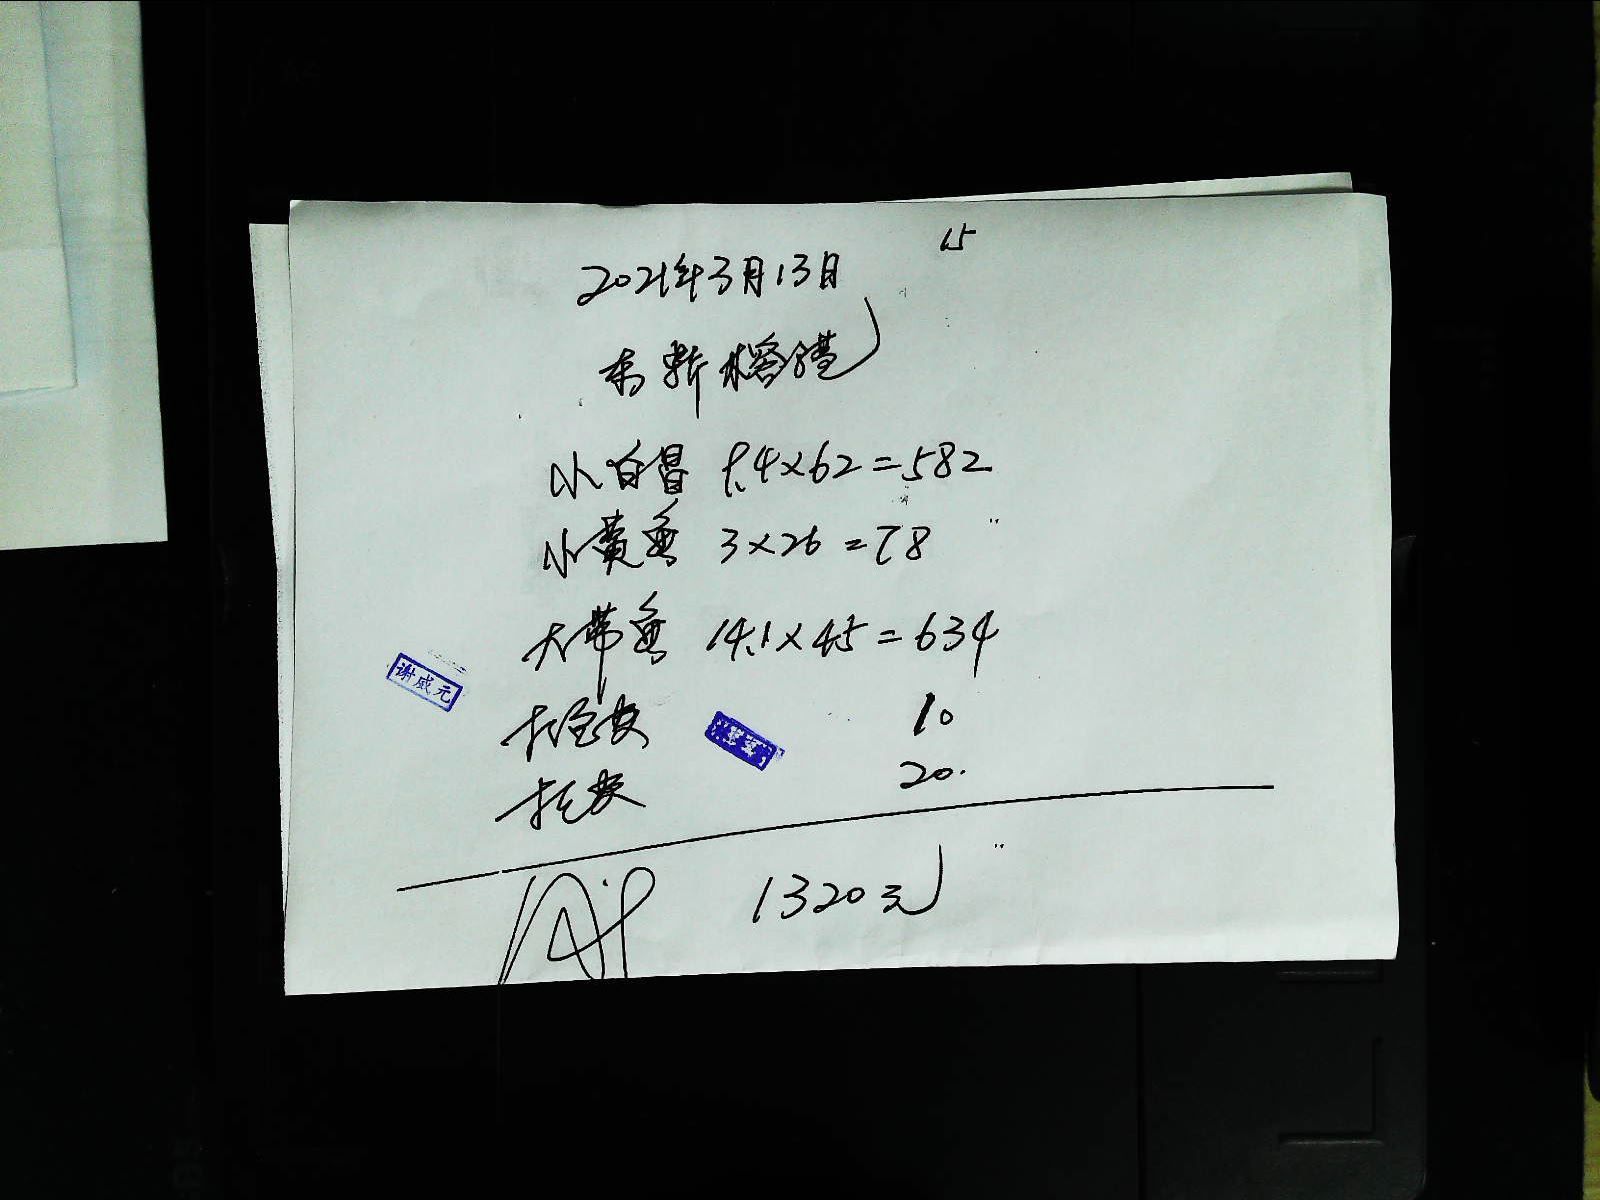 15
2021年3月13日
小白昌 9.4×62=582
小黄鱼 3×26=78
大带鱼 14.1×45=634
谢威元
打包费 10
托费 20.
1320元